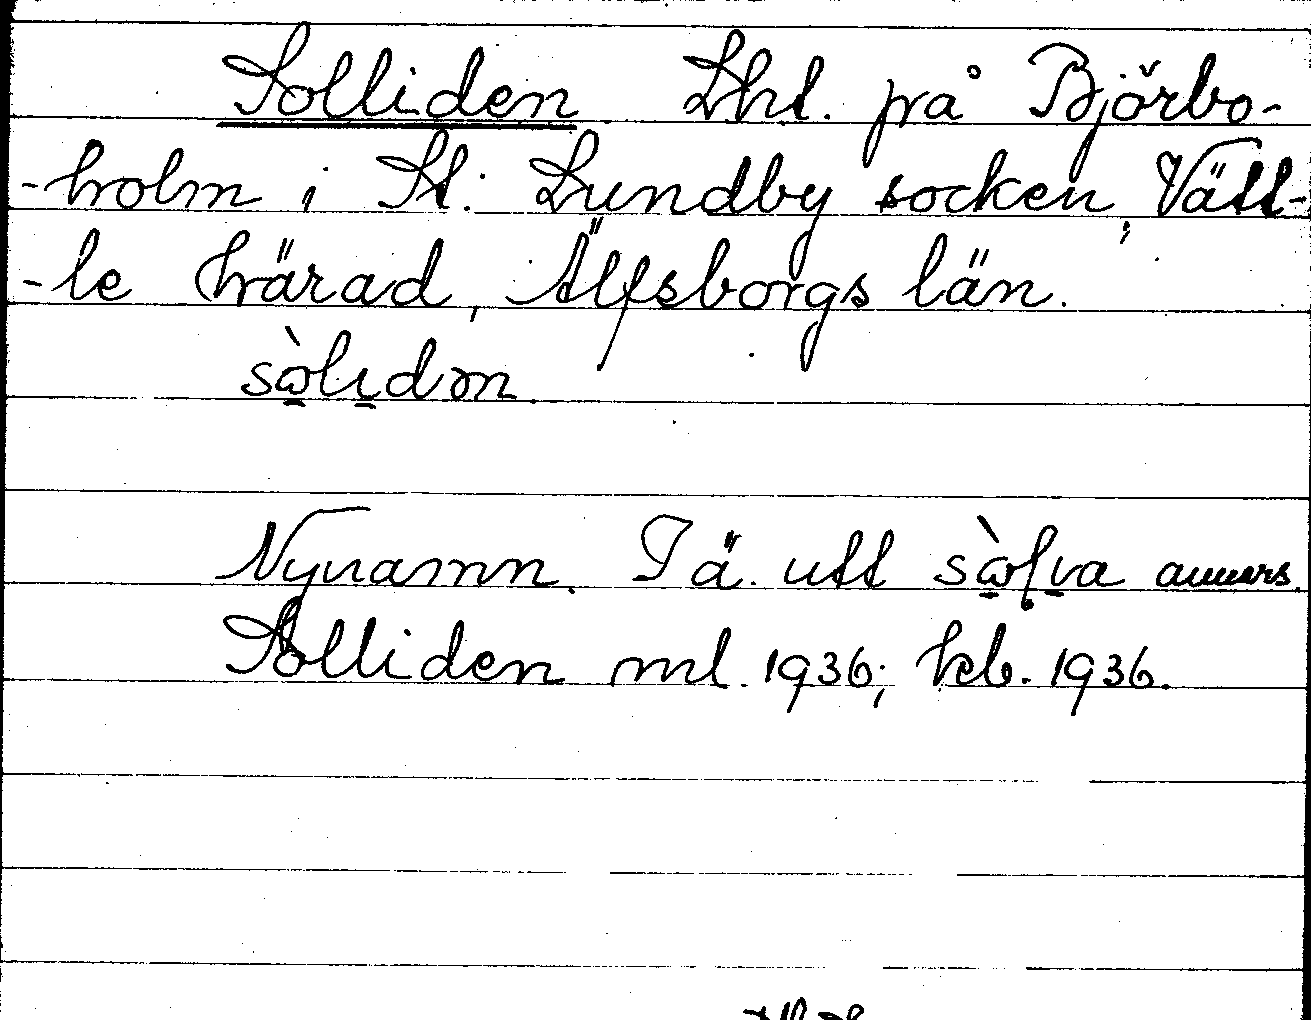 Solliden Lht. på Björbo-
-holm i St. Lundby socken, Vätt-
-le härad, Älfsborgs län.
sὼlιdən.
Nynamn. I ä. utt sὼlιva annars.
Solliden ml. 1936; kb. 1936.